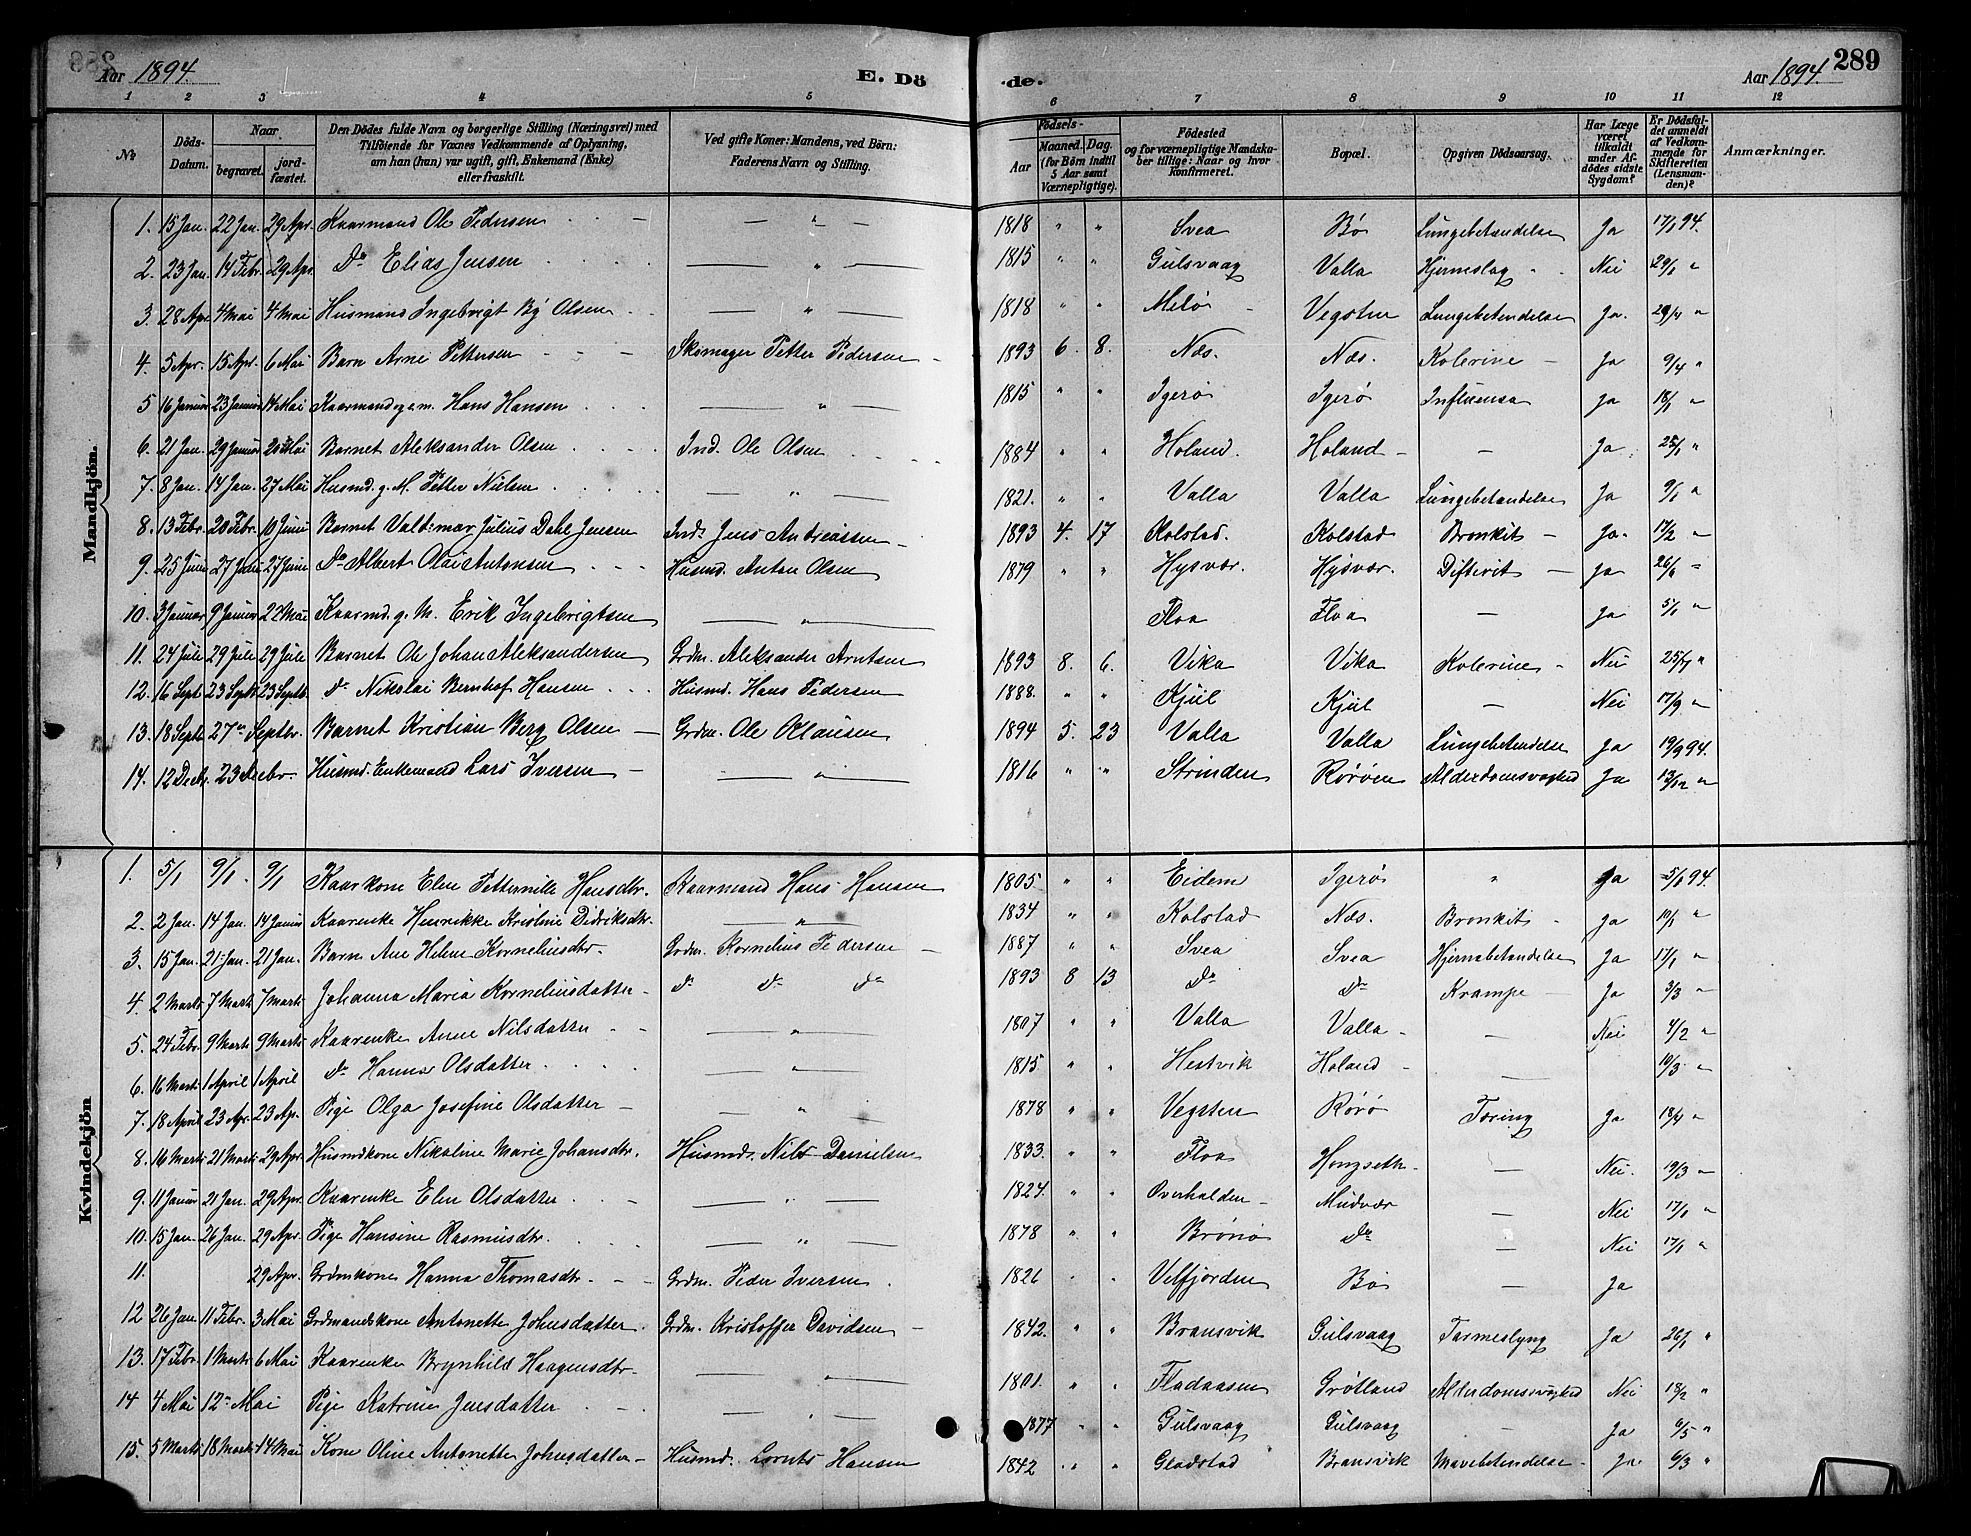 Aar 1894. E. Dö
-de. Aar 1894. 289
1 2 3 4 5 6 7 8 9 10 11 12
No Döds-Datum. Naar begravet. jordfæstet. Den Dödes fulde Navn og borgerlige Stilling (Næringsvei) med Tilföiende för Voxnes Vedkommende af Oplysning, om han (hun) var ugift, gift, Enkemand (Enke) eller fraskilt. Ved gifte Koner: Mandens, ved Börn: Faderens Navn og Stilling. Födsels- Aar Maaned. Dag. (for Börn indtil 5 Aar samt Værnepligtige). Födested og for værnepligtige Mandskaber tillige: Naar og hvor konfirmeret. Bopæl. Opgiven Dödsaarsag. Har Læge været tilkaldt under Afdödes sidste Sygdom? Er Dödsfaldet anmeldt af Vedkommende for Skifteretten (Lensmanden)? Anmærkninger.
Mandkjön.
1. 15 Jan. 22 Jan. 29 Apr. Kaarmand Ole Pedersen — " — 1818 " " Svea Bö Lungebetændelse Ja 17/1 94.
2. 23 Jan. 14 Febr. 29 Apr. Do Elias Jensen — " — 1815 " " Gulsvaag Valla Hjerneslag Nei 29/1 "
3. 28 Apr. 4 Mai 4 Mai Husmand Ingebrigt Olsen — " — 1818 " " Melö Vegsten Lungebetendelse Ja. 29/4 "
4. 5 Apr. 15 Apr. 6 Mai Barn Arne Pettersen Skomager Petter Pedersen 1893 6. 8. Næs. Næs. Kolerine Ja 9/4 "
5 16 Januar 23 Januar 14 Mai Kaarmand g. m. Hans Hansen — " — 1815 " " Igerö Igerö Influensa Ja 18/1 "
6. 21 Jan. 29 Januar Mai Barnet Aleksander Olsen Ind. Ole Olsen 1884 " " Holand. Holand — Ja 25/1 "
7. 8 Jan. 14 Jan. 27 Mai Husmd. g. M. Petter Nielsen — " — 1821. " " Valla Valla Lungebetændelse Ja 9/1 "
8. 13 Febr. 20 Febr. 10 Juni Barnet Valdemar Julius Dahl Jensen Inds. Jens Andreassen 1893 4. 17 Kolstad. Kolstad Bronkit Ja. 17/2 "
9. 25 Juni 27 Juni 27 Juni Do Albert Olai Antonsen Husmd. Anton Olsen 1879 " " Hysvær. Hysvær. Difterit Ja 26/6 "
10. 3 Januar 9 Januar 22 Mai Kaarmd. g. M. Erik Ingebrigtsen — " — Floa Floa — Ja 5/1 "
11. 24 Juli 29 Juli 29 Juli Barnet Ole Johan Aleksandersen Grdm. Aleksander Arntsen 1893 8. 6. Vika Vika Kolerine Nei 25/7 "
12. 16 Sept 23 Septb 23 Septb. do Nikolai Bernhof Hansen Husmd. Hans Pedersen 1888. " " Kjul Kjul — Nei 17/9 "
13. 18 Septb 27de Septbr. Barnet Kristian Berg Olsen Grdm. Ole Klausen 1894 5. 23 Valla Valla Lungebetendelse Ja 19/9 94.
14. 12 Decbr. 23 Decbr. Husmd. Enkemand Lars Iversen — " — 1816 " " Strinden Röröen Alderdomssvaghed Ja 13/12 "
Kvindekjön
1. 5/1 9/1 9/1 Kaarkone Elen Petternille Hansdtr. Kaarmand Hans Hansen 1805. " " Eidem Igerö " Ja 5/1 94.
2. 2 Jan. 14 Jan. 14 Januar Kaarenke Henrikke Kristine Didriksdtr. — " — 1834 " " Kolstad Næs. Bronkit Ja 10/1 "
3. 15 Jan. 21 Jan. 21 Jan. Barn Ane Helene Korneliusdtr. Grdm. Kornelius Pedersen 1887 " " Svea Svea Hjernebetændelse Ja 17/1 "
4. 2 Marts 7 Marts 7 Marts Johanna Maria Korneliusdatter do do do 1893 8 13 do do Krampe Ja 3/3 "
5. 24 Febr. 9 Marts 9 Marts Kaarenke Anne Nilsdatter — " — 1807 " " Valla Valla — Nei 4/2 "
6. 16 Marts 1 April 1 April do Hanna Olsdatter — " — 1815 " " Hestvik Holand — 19/3 "
7. 18 April 23 Apr. 23 Ap. Pige Olga Josefine Olsdatter — " — 1878 " " Vegsten Rörö Tæring Ja 18/4 "
8. 16 Marts 21 Marts 29 Apr. Husmdkone Nikoline Marie Johansdtr. Husmd. Nils Danielsen 1833. " " Floa Hongseth — Nei. 19/3 "
9. 11 Januar 21 Jan. 29 Apr. Kaarenke Elen Olsdatter — " — 1824. " " Overhalden Mudvær — Nei 17/1 "
10. 15 Jan. 26 Jan. 29 Apr. Pige Hansine Rasmusdtr. — " — 1878 " " Brönö Do — Nei 17/1 "
11. 29 Apr. Grdmkone Hanna Thomasdtr. Grdm. Peder Iversen. 1826 " " Velfjorden Bö — Ja
12 26 Jan. 11 Febr. 3 Mai Grdmandskone Antonette Johnsdatter Grdm. Kristoffer Davidsen 1842. " " Bransvik Gulsvaag Tarmeslyng Ja 26/1 "
13. 17 Febr. 1 Marts 6 Mai Kaarenke Brynhild Haagensdtr. — " — 1801. " " Fladaasen Grötland Alderdomssvaghed Nei 13/2 "
14 4 Mai 12te Mai Pige Katrine Jensdatter — " — 1877 " " Gulsvaag Gulsvaag — Ja 6/5 "
15. 5 Marts 18 Marts 14 Mai Kone Oline Antonette Johnsdatter Husmd. Lornts Hansen 1842 " " Gladstad Bransvik Mavebetendelse Ja. 6/3 "